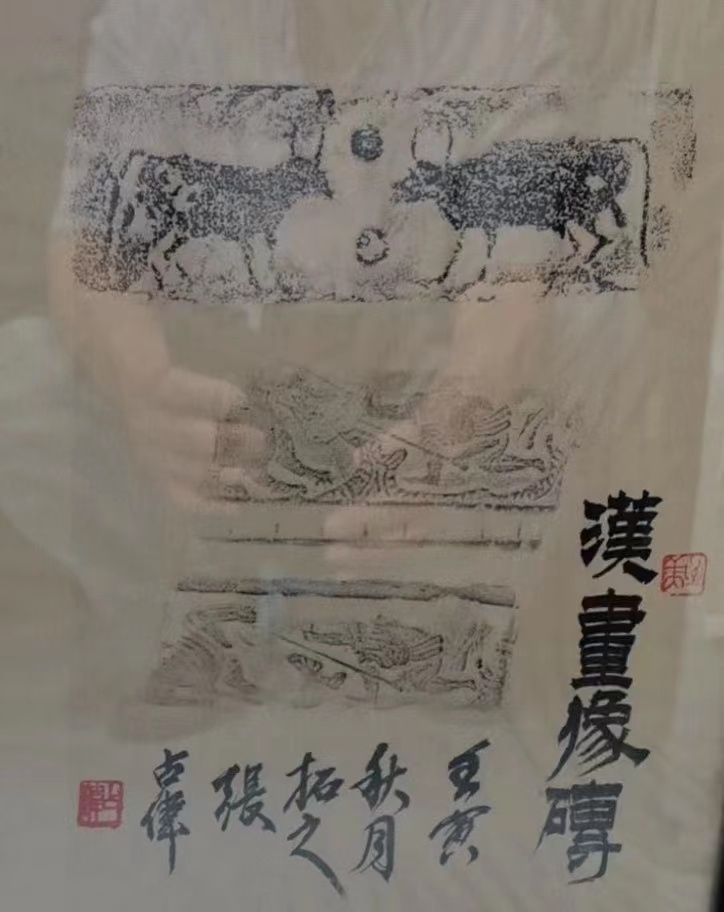 漢畫像磚
壬寅
秋月
拓之
張
占偉